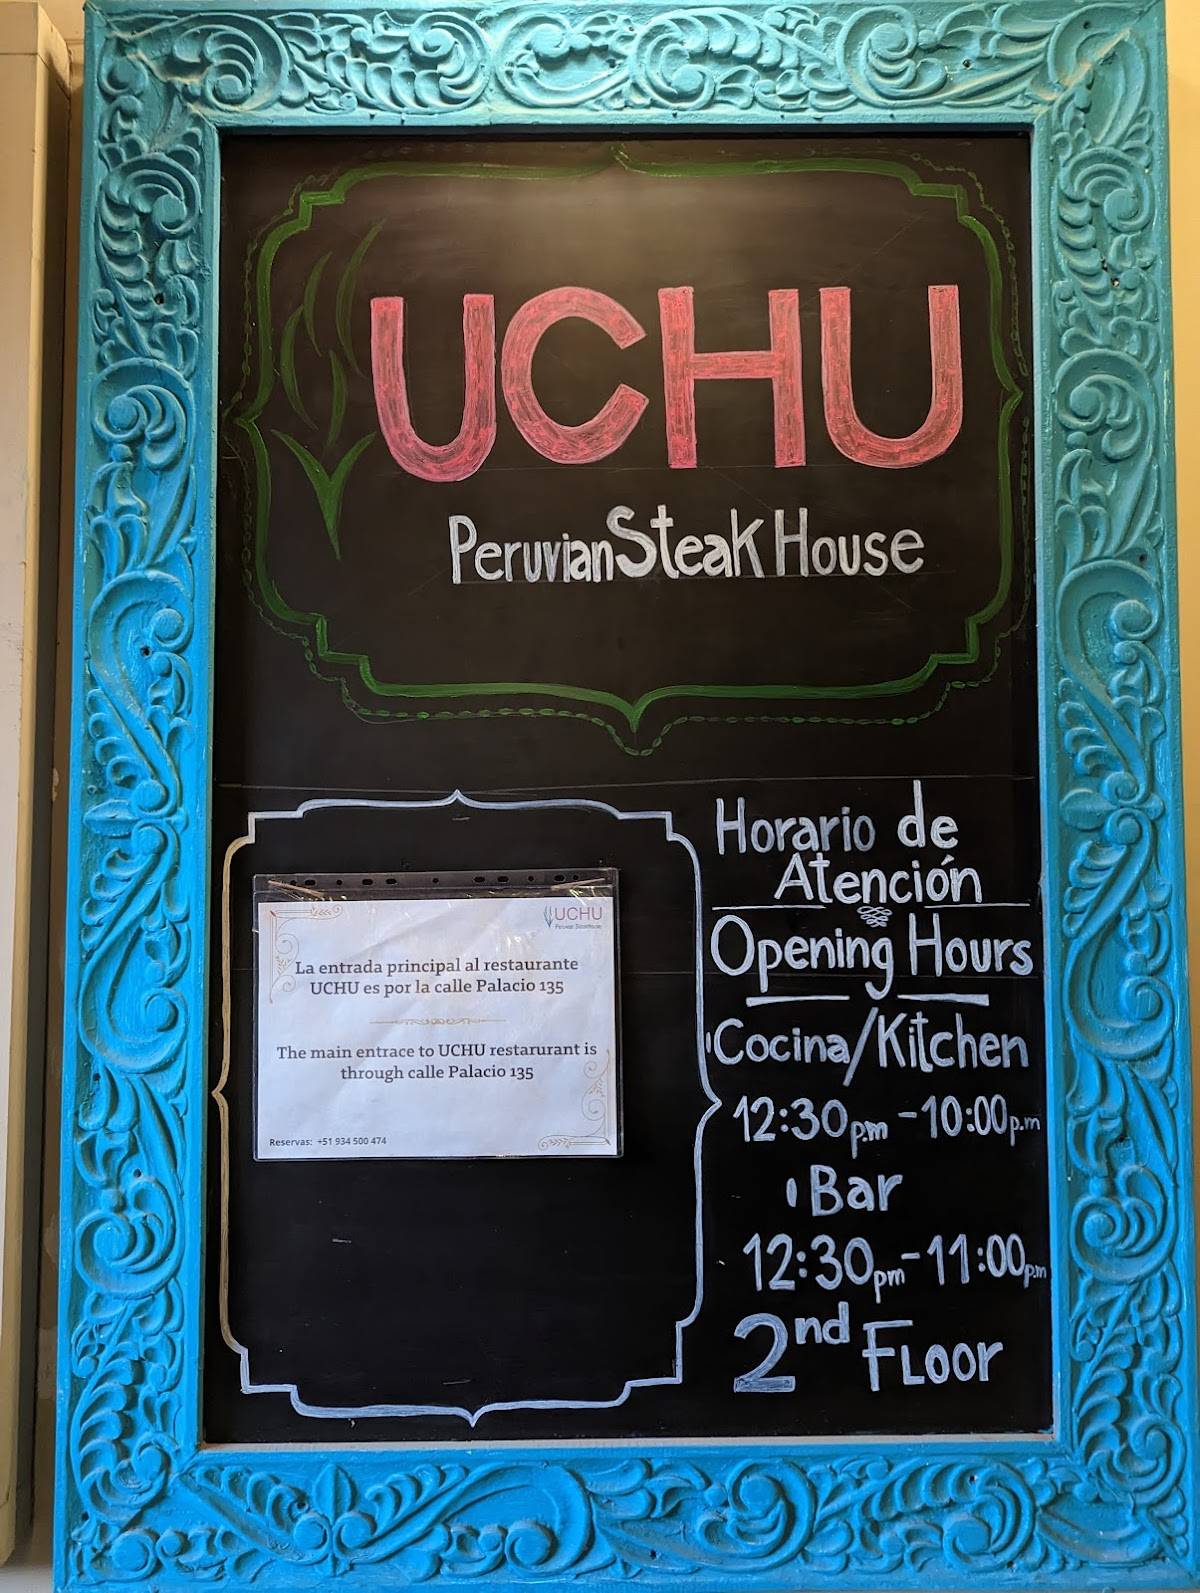 UCHU
Peruvian Steak House
UCHU
Peruvian Steakhouse
La entrada principal al restaurante
UCHU es por la calle Palacio 135
The main entrace to UCHU restarurant is
through calle Palacio 135
Reservas: +51 934 500 474
Horario de
Atención
Opening Hours
Cocina/Kitchen
12:30 p.m - 10:00 p.m
Bar
12:30 pm - 11:00 p.m
2nd Floor